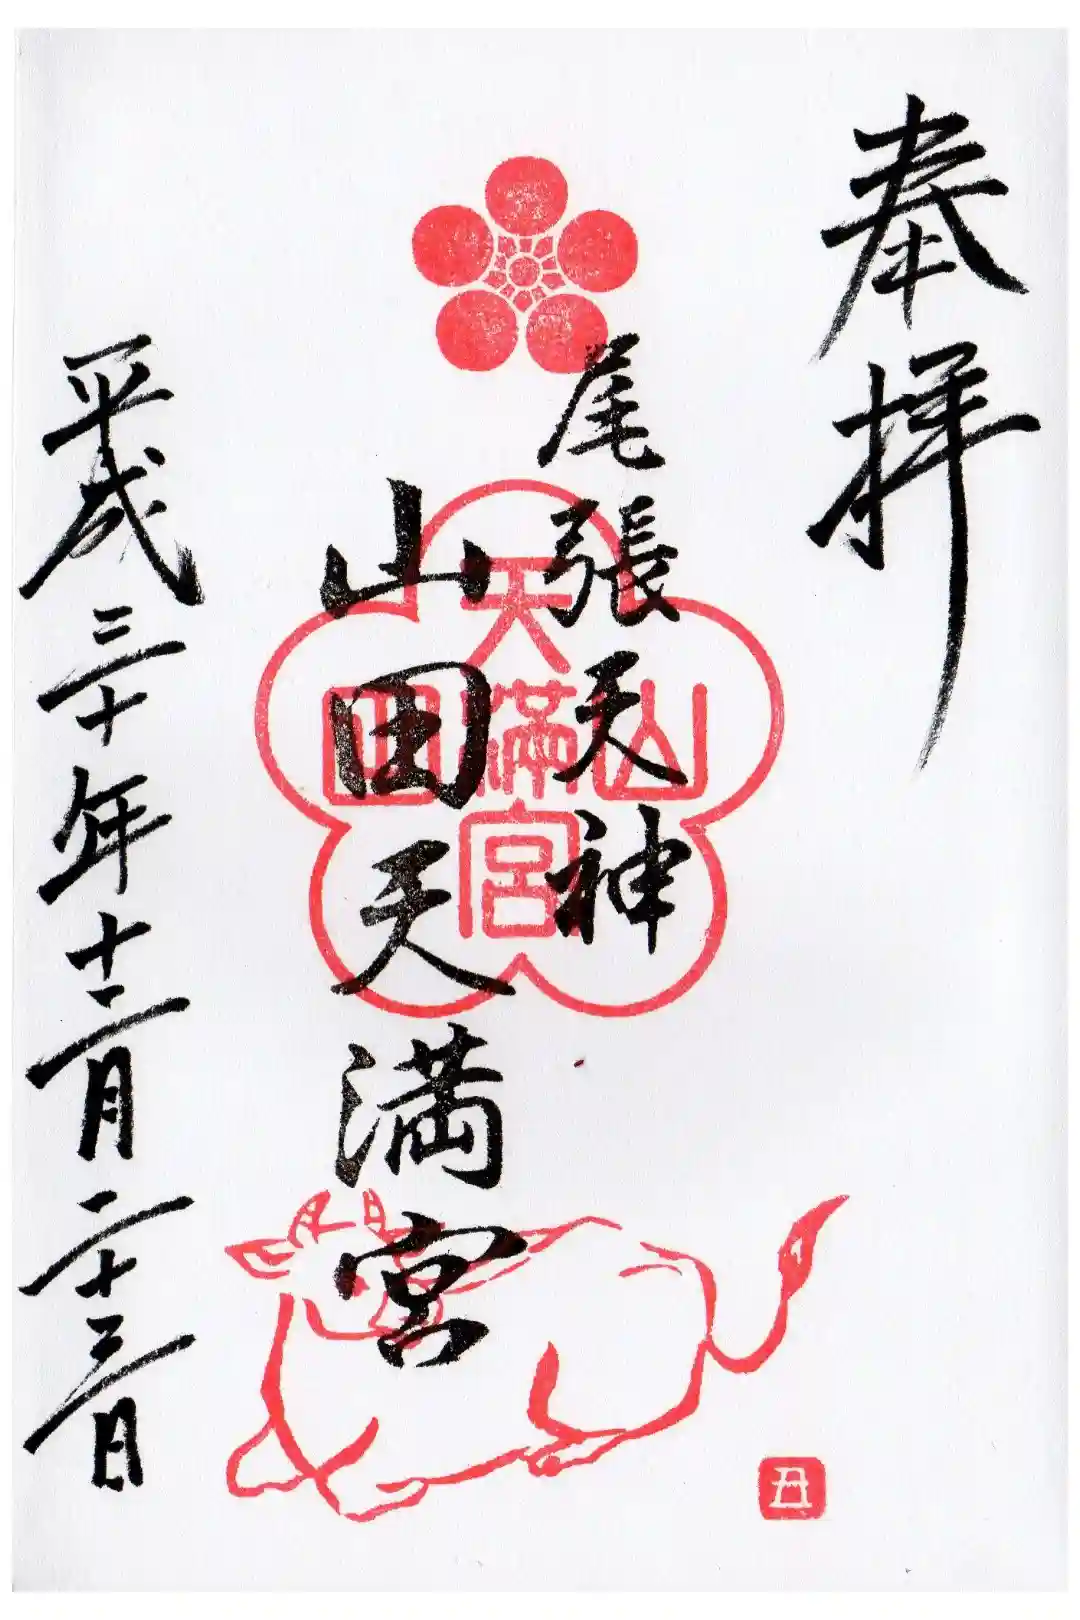 奉拝
尾張天神
山田天満宮
平成三十年十二月二十三日
山田天満宮
丑